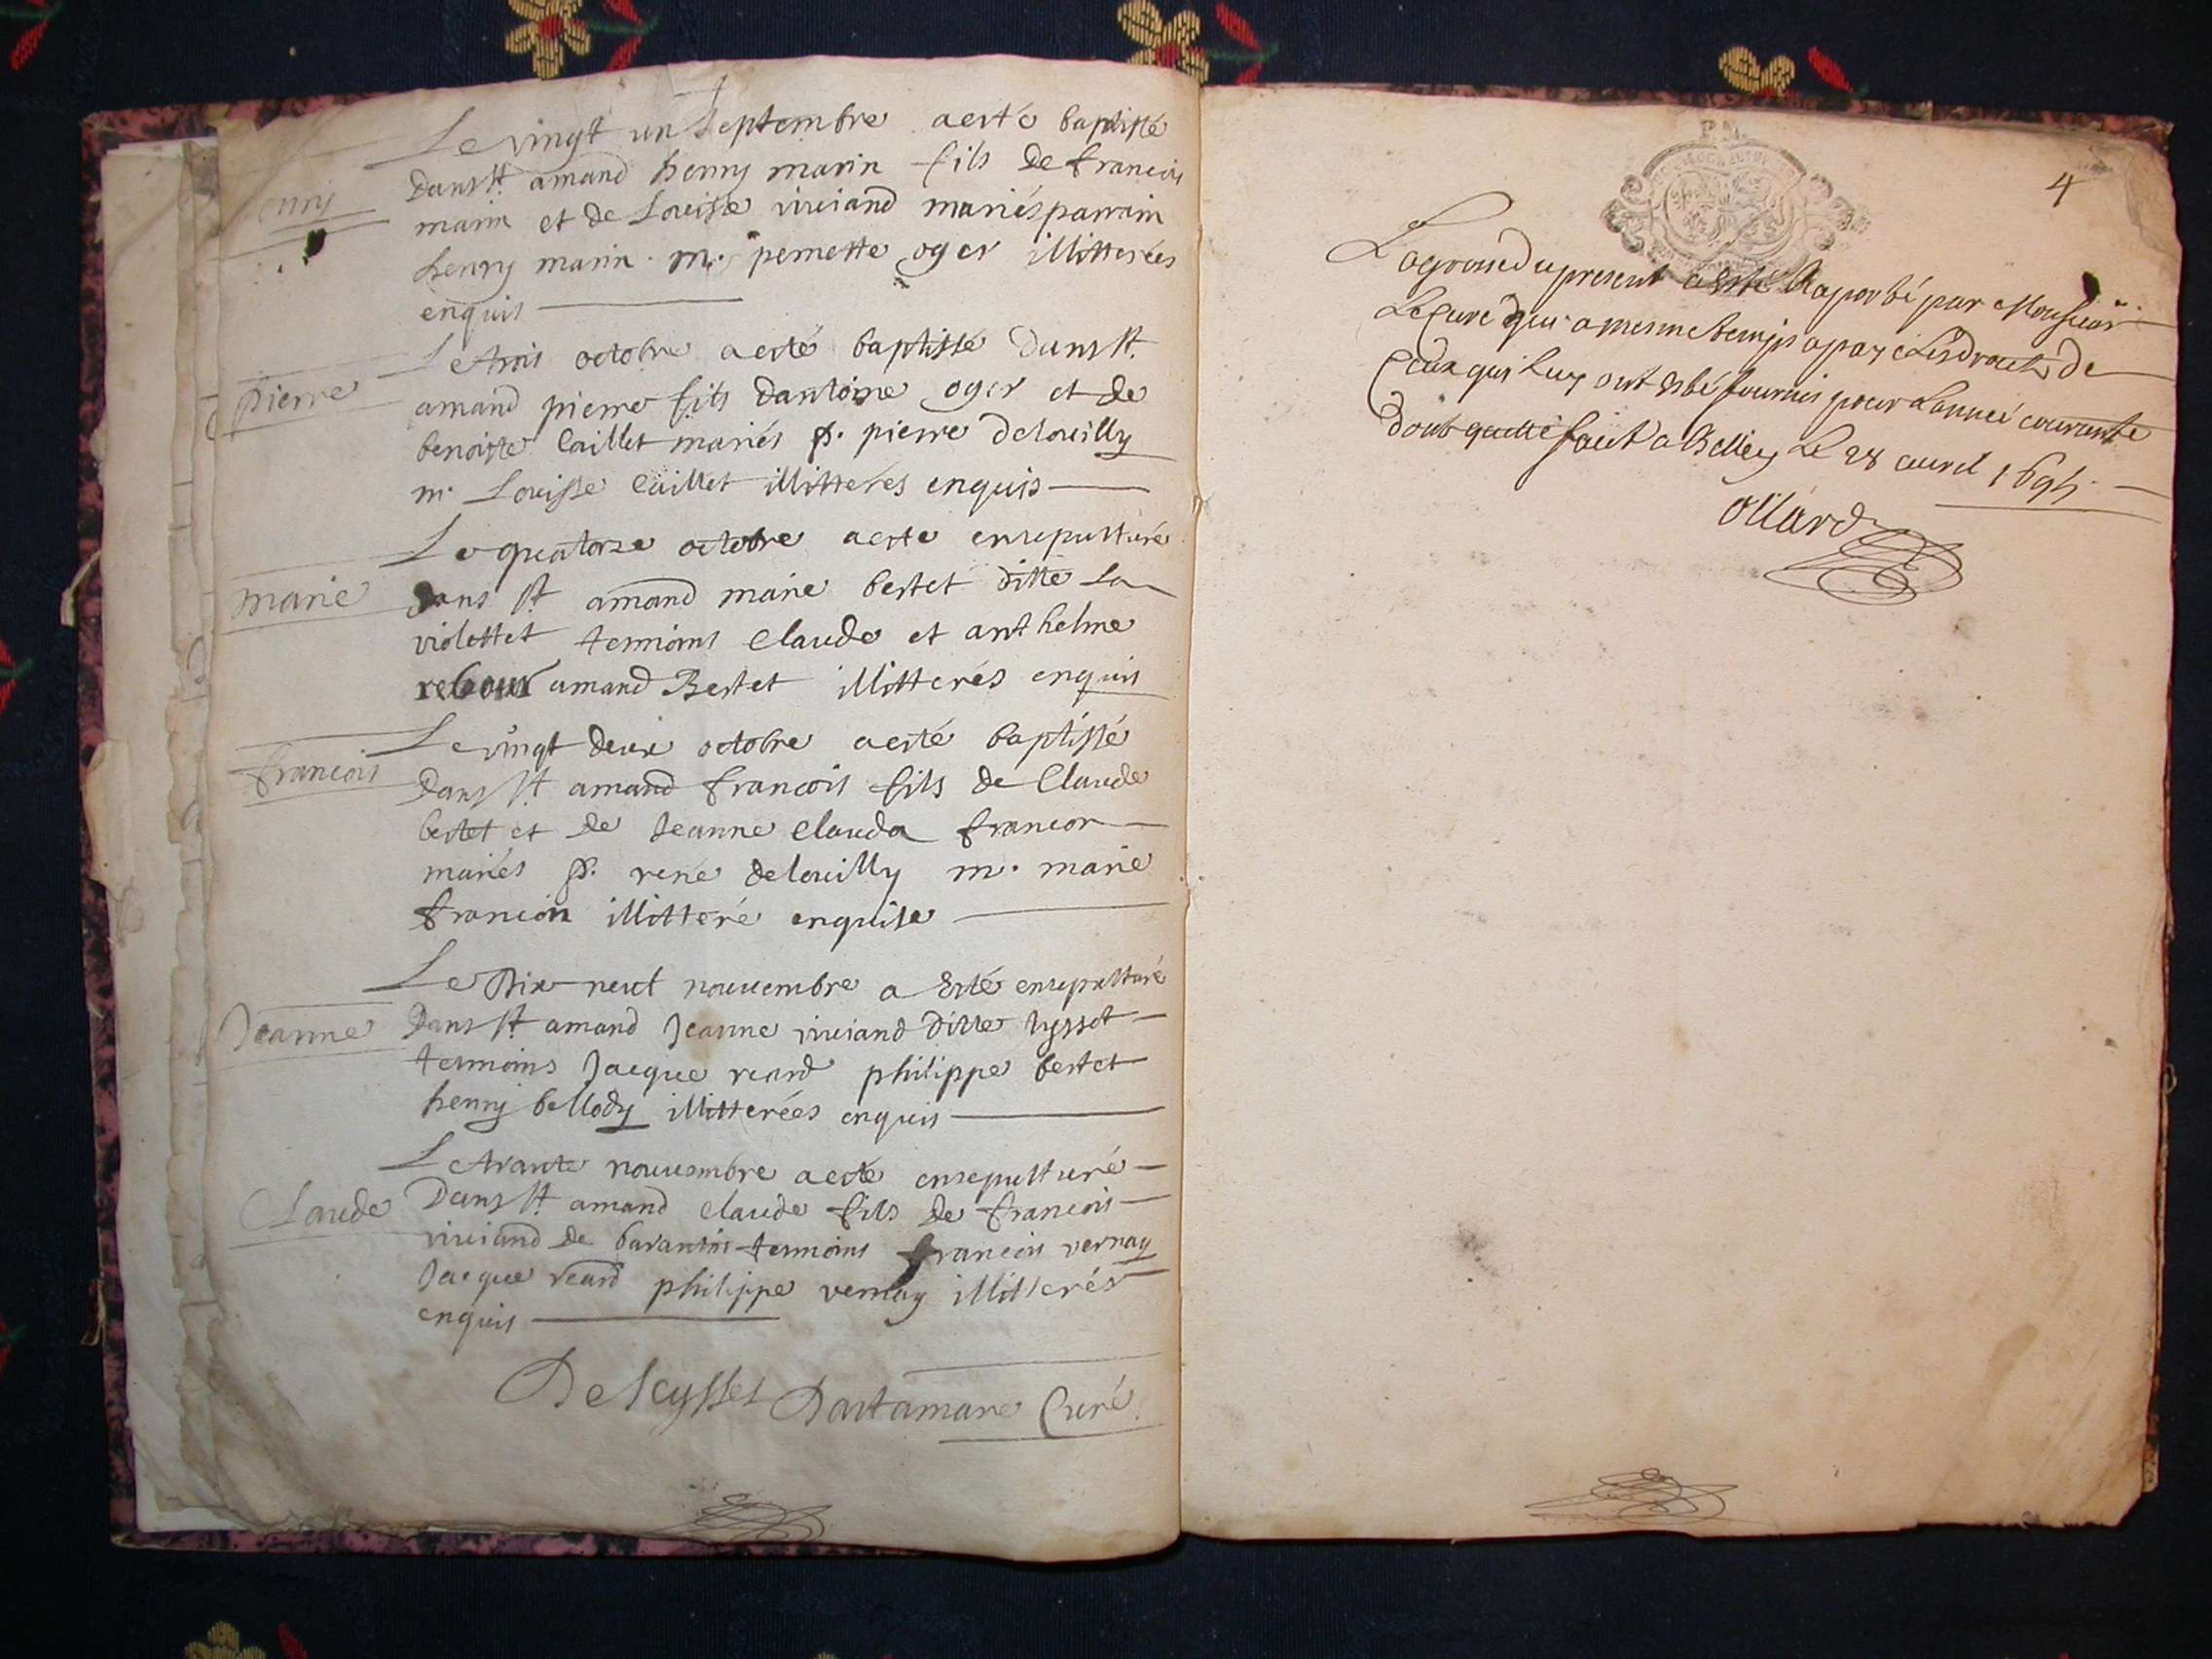 Le vingt un septembre a esté baptissé
henry
dans st. amand henry marin fils de francois
marin et de Louisse viviand mariés parrain
henry marin . m. pernette oger illitterées
enquis
Le trois octobre a esté baptissé dans st.
pierre
amand pierre fils dantoine oger et de
benoiste Caillet mariés p. pierre delouilly
m. Louisse Caillet illitterés enquis
Le quatorze octobre a este ensepulturé
marie
dans st amand marie bertet ditte La
violettet termoins Claude et anthelme
reboux amand Bertet illitterés enquis
Le vingt deux octobre a esté baptissé
francois
Dans st amand francois fils de Claude
bertet et de Jeanne Clauda francon
mariés p. rené delouilly m. marie
francon illitteré enquise
Le Dix neuf novuembre a Esté ensepulturé
Jeanne
Dans st amand Jeanne viviand ditte lysset
termoins Jacque reard philippe bertet
henry bellody illitterées enquis
Le trante nouuembre a esté ensepulturé
Claude
Dans st amand claude fils de francois
viviand de termoins francois vernay
Jacque reard philippe vernay illitterés
enquis
Deseyssel Dartamare Curé
4
La grosse du present a esté Raporté par Monsieur
Le Curé qui a mesme temps a payé Les droits de
Ceux qui Luy ont esté fournis pour Lannée courante
dont quitte fait a Belley Le 28 avril 1694
Ollard